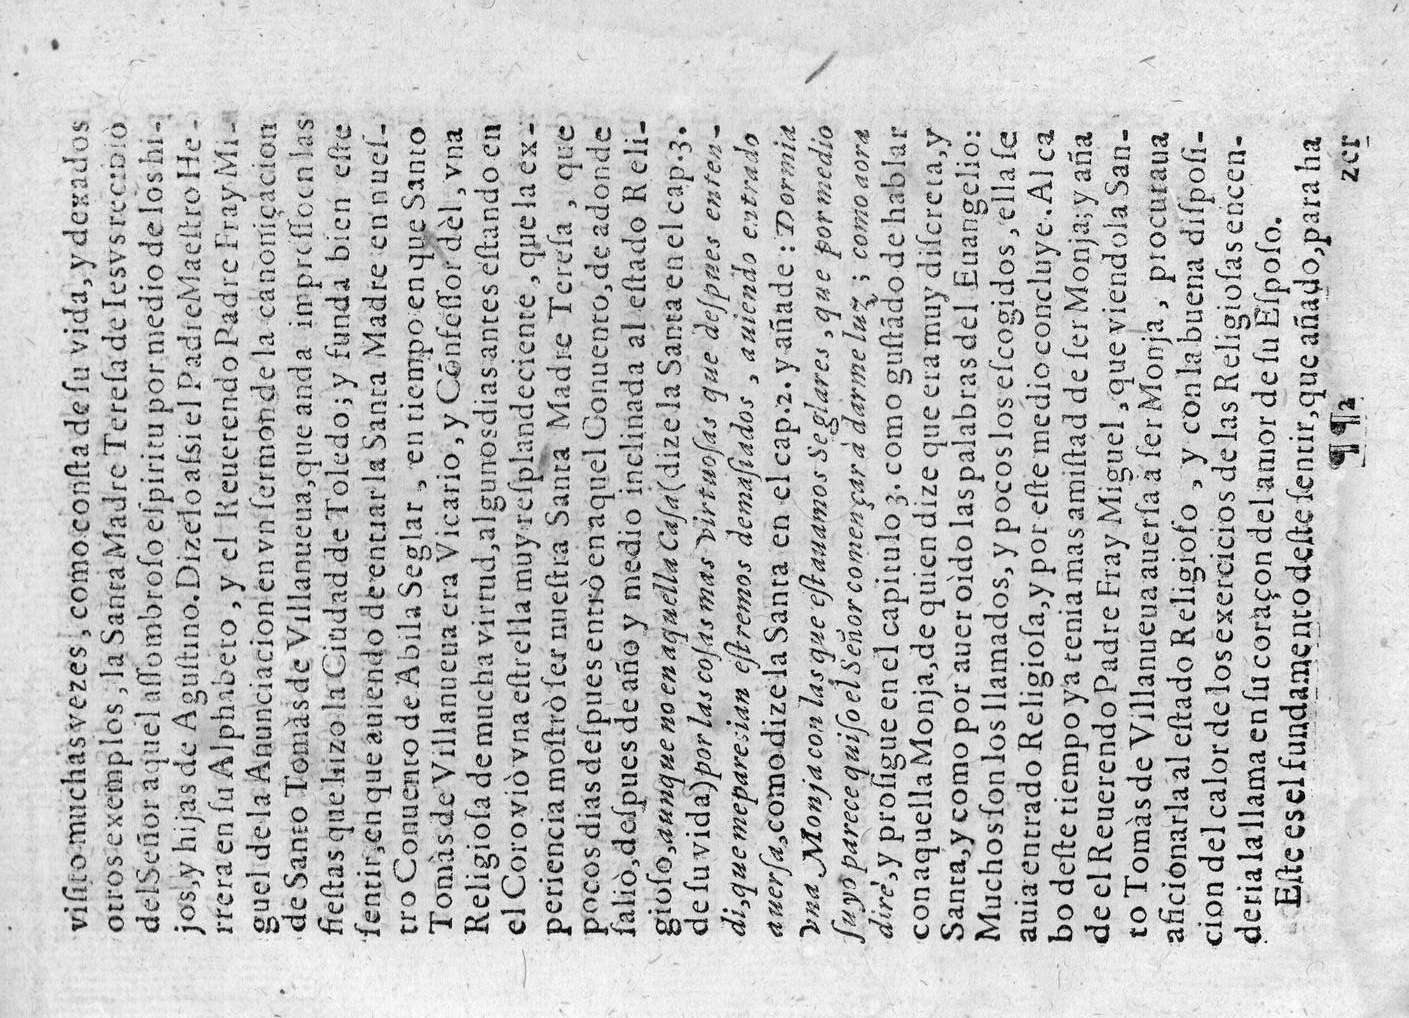 viſitò muchas vezes, como conſta de ſu vida, y dexados
otros exemplos, la Santa Madre Tereſa de Iesvs recibiò
del Señor aquel aſſombroſo eſpiritu por medio de los hi-
jos, y hijas de Aguſtino. Dizelo aſsi el Padre Maeſtro He-
rrera en ſu Alphabeto, y el Reuerendo Padre Fray Mi-
guel de la Anunciacion en vn ſermon de la canoniçacion
de Santo Tomàs de Villanueua, que anda impreſſo en las
fieſtas que hizo la Ciudad de Toledo; y funda bien eſte
ſentir, en que auiendo de entrar la Santa Madre en nueſ-
tro Conuento de Abila Seglar, en tiempo en que Santo
Tomàs de Villanueua era Vicario, y Cõfeſſor dèl, vna
Religioſa de mucha virtud, algunos dias antes eſtando en
el Coro viò vna eſtrella muy reſplandeciente, que la ex-
periencia moſtrò ſer nueſtra Santa Madre Tereſa, que
pocos dias deſpues entrò en aquel Conuento, de adonde
ſaliò, deſpues de año y medio inclinada al eſtado Reli-
gioſo, aunque no en aquella Caſa (dize la Santa en el cap. 3.
de ſu vida) por las coſas mas virtuoſas que deſpues enten-
di, que me pareçian eſtremos demaſiados, auiendo entrado
auerſa, como dize la Santa en el cap. 2. y añade: Dormia
vna Monja con las que eſtauamos Seglares, que por medio
ſuyo parece quiſo el Señor començar à darme luz; como aora
dirè, y proſigue en el capitulo 3. como guſtádo de hablar
con aquella Monja, de quien dize que era muy diſcreta, y
Santa, y como por auer oìdo las palabras del Euangelio:
Muchos ſon los llamados, y pocos los eſcogidos, ella ſe
auia entrado Religioſa, y por eſte medio concluye. Al ca
bo deſte tiempo ya tenia mas amiſtad de ſer Monja; y aña
de el Reuerendo Padre Fray Miguel, que viendo la San-
to Tomàs de Villanueua auerſa à ſer Monja, procuraua
aficionarla al eſtado Religioſo, y con la buena diſpoſi-
cion del calor de los exercicios de las Religioſas encen-
deria la llama en ſu coraçon del amor de ſu Eſpoſo.
Eſte es el fundamento deſte ſentir, que añado, para ha
¶¶2
zer